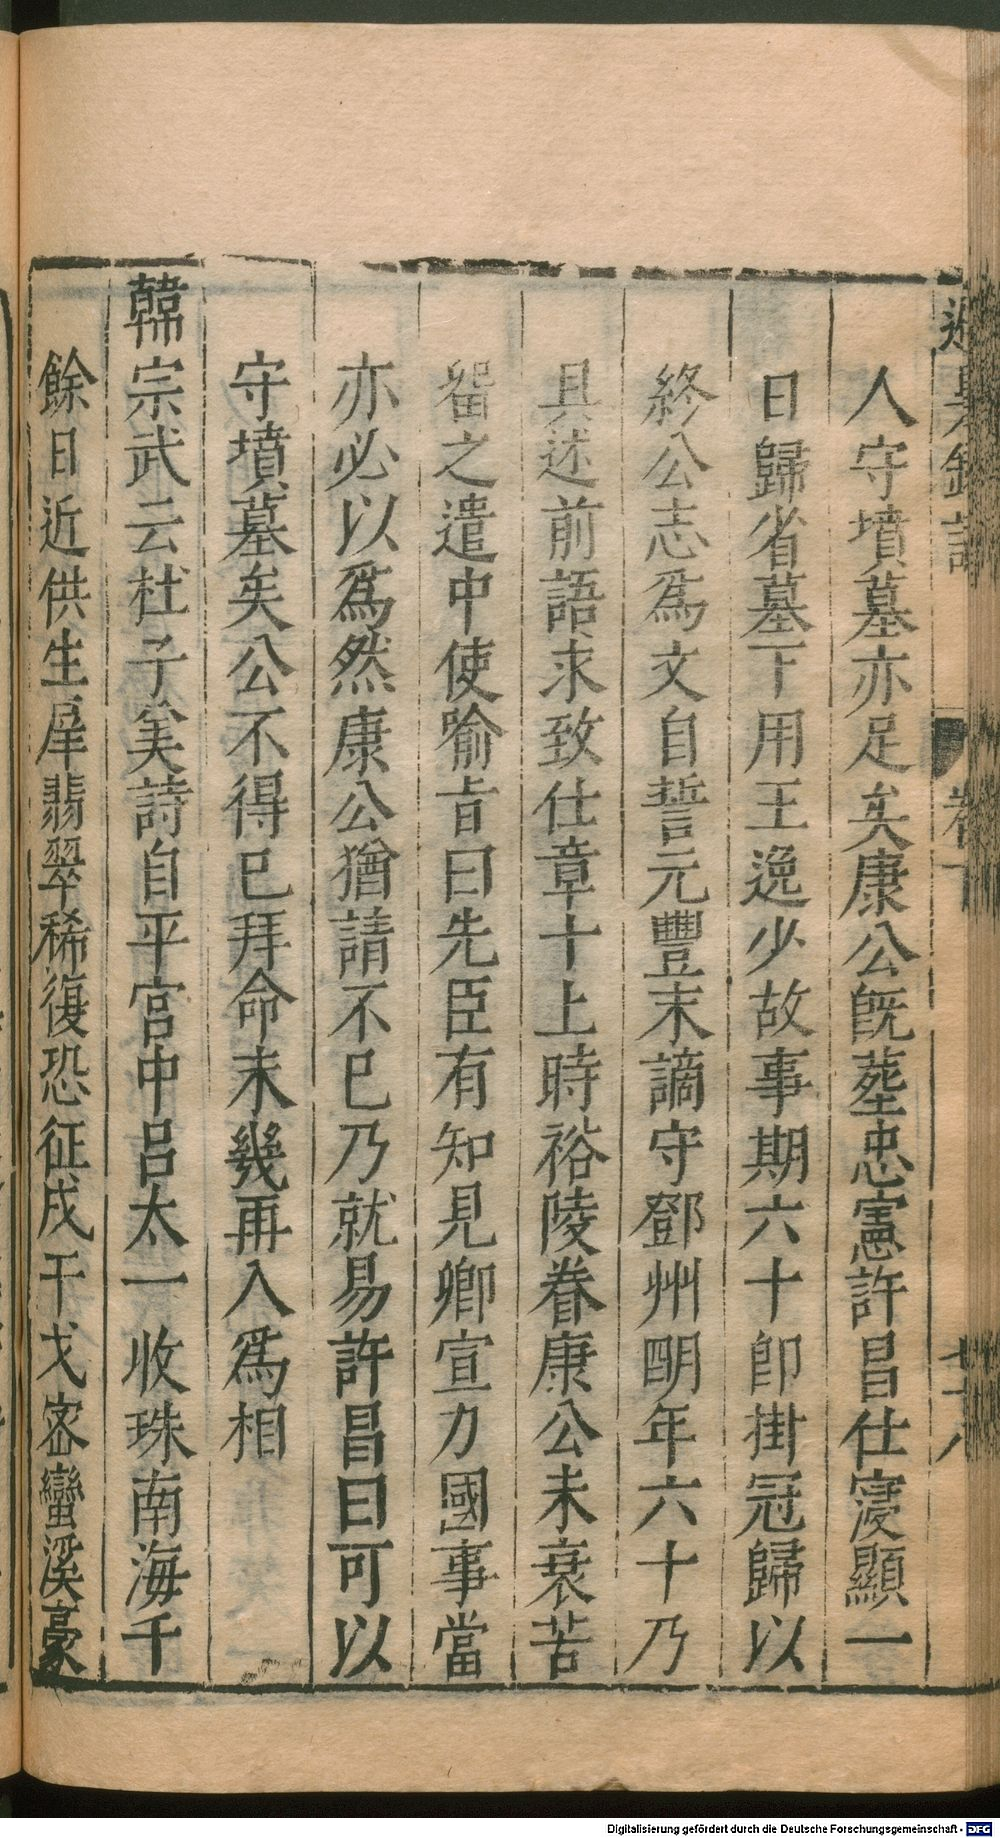 人守墳墓亦足矣康公既塟忠憲許昌仕寖顯一
日歸省墓下用王逸少故事期六十卽掛冠歸以
終公志爲文自誓元豐末謫守鄧州明年六十乃
具述前語求致仕章十上時裕陵眷康公未衰苦
畱之遣中使喻旨曰先臣有知見卿宣力國事當
亦必以爲然康公猶請不已乃就易許昌曰可以
守墳墓矣公不得已拜命未幾再入爲相
韓宗武云杜子美詩自平宫中吕太一收珠南海千
餘日近供生犀翡翠稀復恐征戍干戈密蠻溪豪
卷下
Digitalisierung gefördert durch die Deutsche Forschungsgemeinschaft - DFG